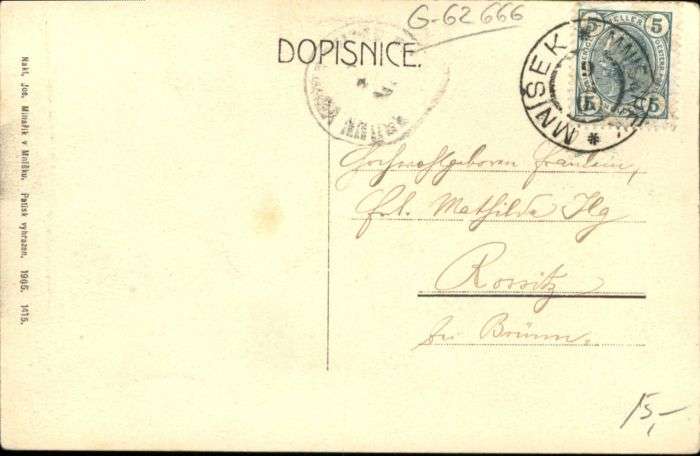 G-62666
DOPISNICE.
5 HELLER 5
MNÍŠEK
5 5
Hochwohlgeboren Fräulein,
Frl. Mathilda Ilg
Rossitz
bei Brünn.
15,-
Nakl. Jos. Minařík v Mníšku. Patisk vyhrazen. 1905. 1415.